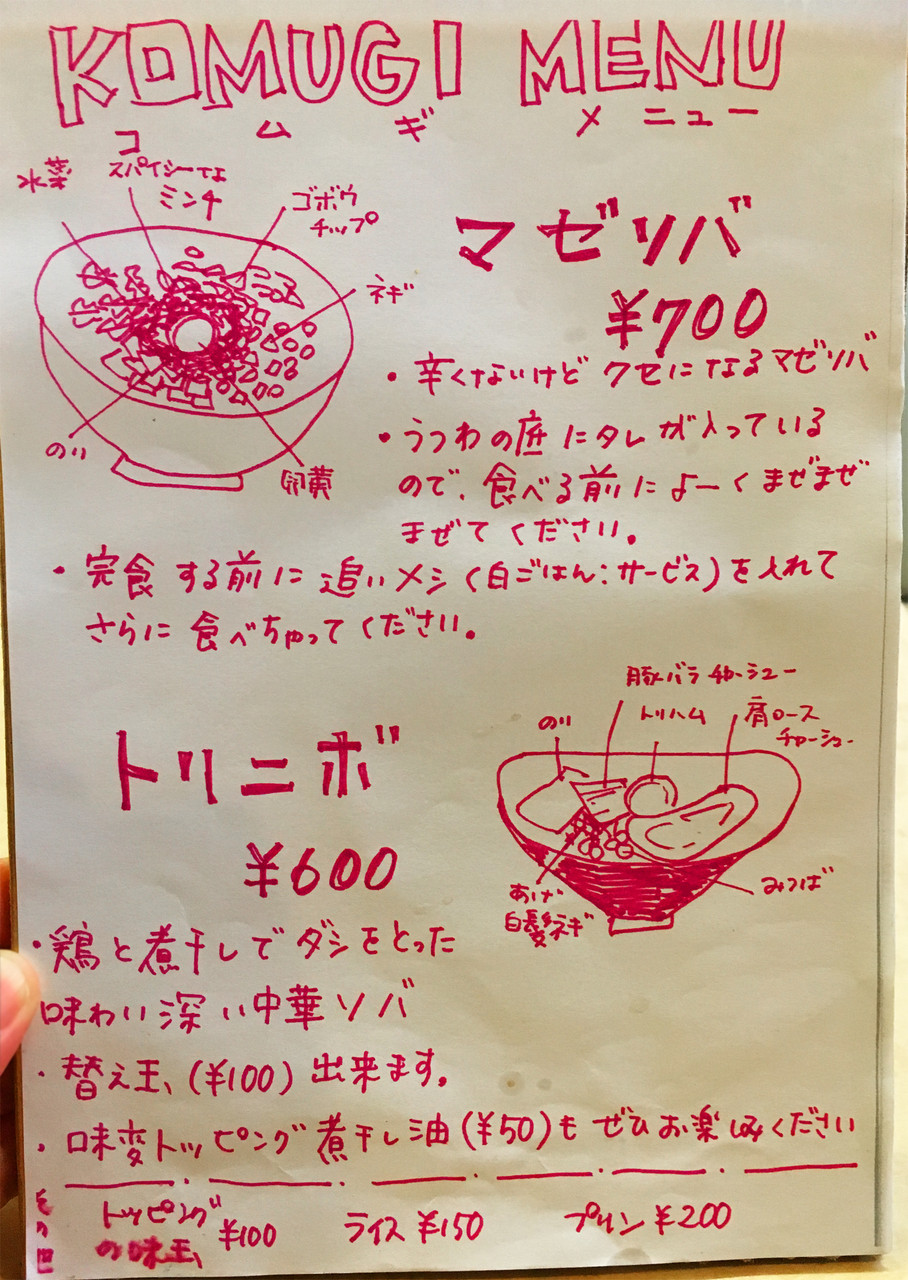 KOMUGI MENU
コムギ メニュー
水菜
スパイシーな
ミンチ
ゴボウ
チップ
ネギ
のり
卵黄
マゼソバ
¥700
・辛くないけど クセになるマゼソバ
・うつわの底にタレが入っている
ので、食べる前によーくまぜまぜ
まぜてください。
・完食する前に追いメシ(白ごはん:サービス)を入れて
さらに食べちゃってください。
トリニボ
¥600
豚バラチャーシュー
のり
トリハム
肩ロース
チャーシュー
あげ
白髪ネギ
みつば
・鶏と煮干しでダシをとった
味わい深い中華ソバ
・替え玉(¥100)出来ます。
・味変トッピング煮干し油(¥50)もぜひお楽しみください
その他
トッピング
の味玉 ¥100
ライス ¥150
プリン ¥200